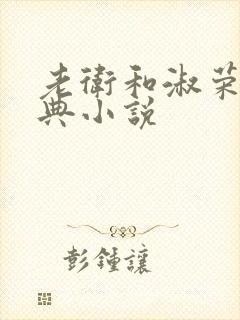 老衛和淑荣
典小說
彭鍾讓